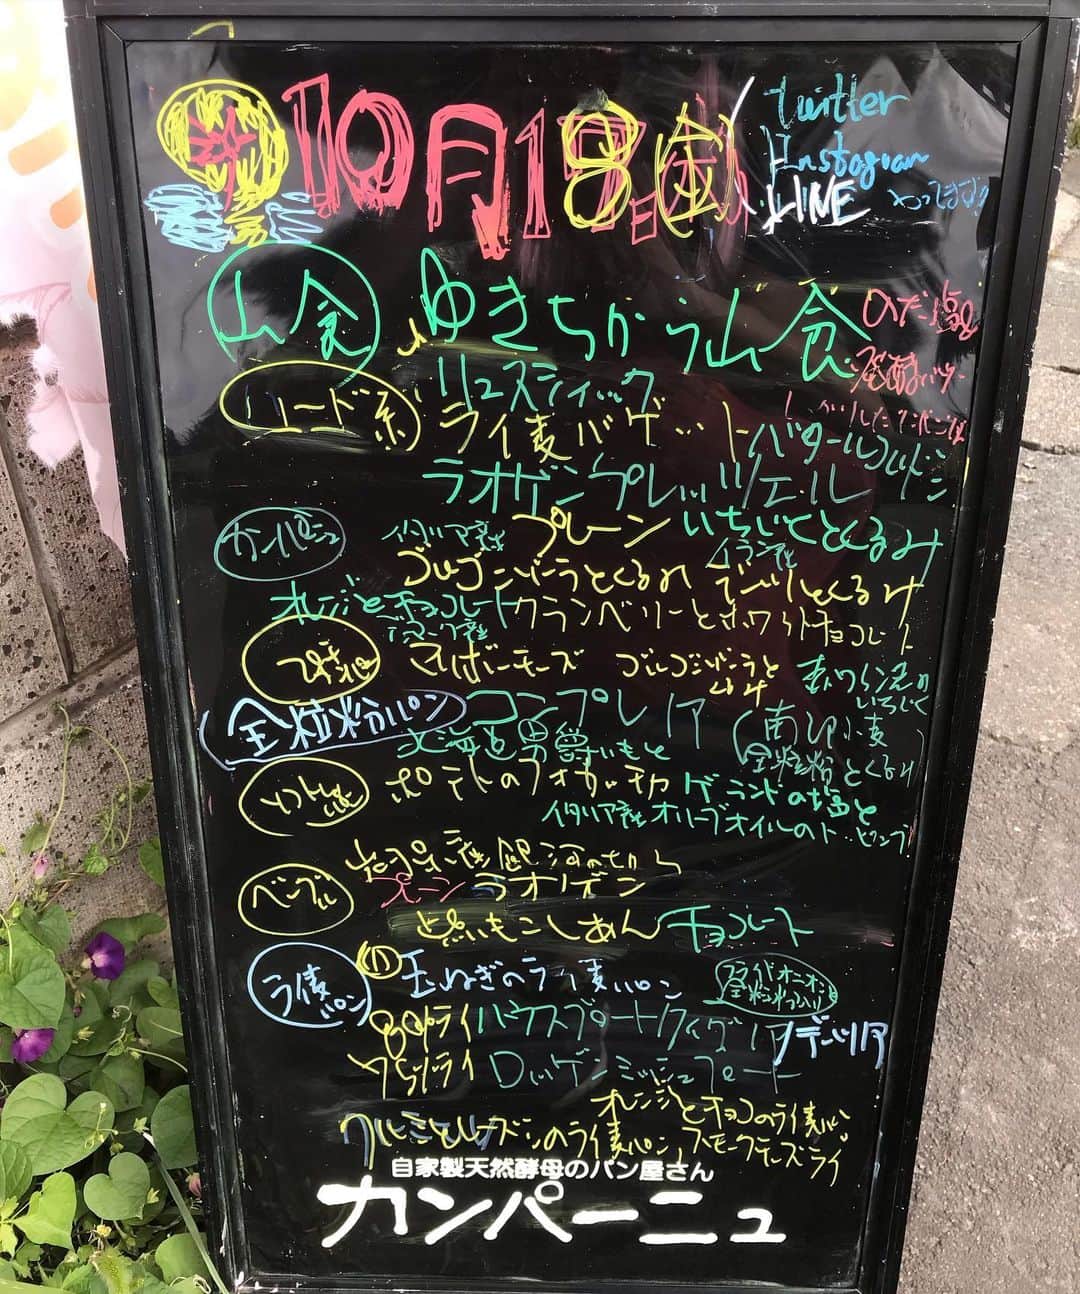 10月18(金)
twitter
Instagram
LINE
やってます!!
山食 ゆきちから山食
リュスティック
ード系 ライ麦バゲット(バタール)
ラオゲンプレッツェル
カンパーニュ イタリア産 プレーン いちじくとくるみ
ゴルゴンゾーラとくるみ イラン産 デーツとくるみ
オレンジとチョコレート クランベリーとホワイトチョコレート
マリボーチーズ ゴルゴンゾーラとくるみ いちじく
全粒粉パン コンプレ (南部小麦全粒粉とくるみ)
北海道男爵いもと
ポテトのフォカッチャ ゲランドの塩と
イタリア産オリーブオイルのトッピング!
銀河のちから
ベーグル プレーン ラオゲン
こしあん チョコレート
ライ麦パン 玉ねぎのライ麦パン
全粒粉入り
80%ライ ハウスブロート
75%ライ ロッゲンミッシュブロート
オレンジとチョコのライ麦パン
クルミとレーズンのライ麦パン スモークチーズライ
自家製天然酵母のパン屋さん
カンパーニュ